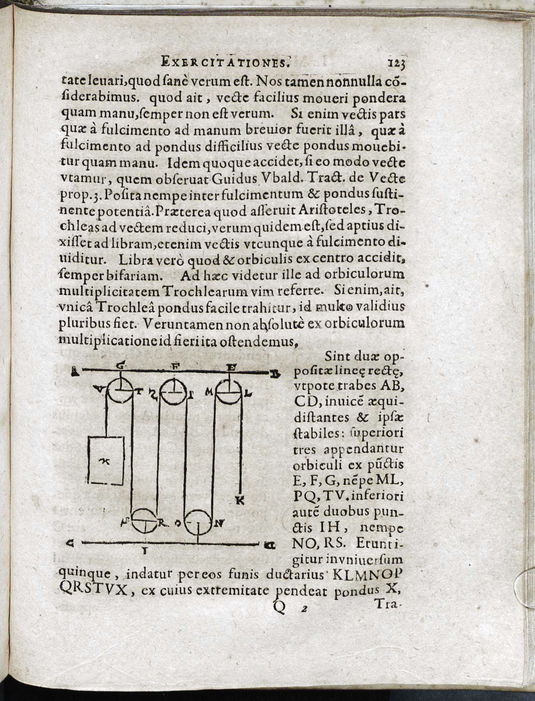 EXERCITATIONES. 123
tate leuari, quod sanè verum est. Nos tamen nonnulla cõ-
siderabimus. quod ait, vecte facilius moueri pondera
quam manu, semper non est verum. Si enim vectis pars
quæ à fulcimento ad manum breuior fuerit illâ, quæ à
fulcimento ad pondus difficilius vecte pondus mouebi-
tur quam manu. Idem quoque accidet, si eo modo vecte
vtamur, quem obseruat Guidus Vbald. Tract. de Vecte
prop. 3. Posita nempe inter fulcimentum & pondus susti-
nente potentiâ. Præterea quod asseruit Aristoteles, Tro-
chleas ad vectem reduci, verum quidem est, sed aptius di-
xisset ad libram, etenim vectis vtcunque à fulcimento di-
uiditur. Libra verò quod & orbiculis ex centro accidit,
semper bifariam. Ad hæc videtur ille ad orbiculorum
multiplicitatem Trochlearum vim referre. Si enim, ait,
vnicâ Trochleâ pondus facile trahitur, id multo validius
pluribus fiet. Veruntamen non absolutè ex orbiculorum
multiplicatione id fieri ita ostendemus,
Sint duæ op-
positæ lineę rectę,
vtpote trabes AB,
CD, inuicẽ æqui-
distantes & ipsæ
stabiles: superiori
tres appendantur
orbiculi ex pũctis
E, F, G, nẽpe ML,
PQ, TV. inferiori
autẽ duobus pun-
ctis IH, nempe
NO, RS. Erunt i-
gitur in vniuersum
A G F E B
V T Q P M L
X
K
S R O N
C I H
quinque, indatur per eos funis ductarius KLMNOP
QRSTVX, ex cuius extremitate pendeat pondus X,
Q 2 Tra-